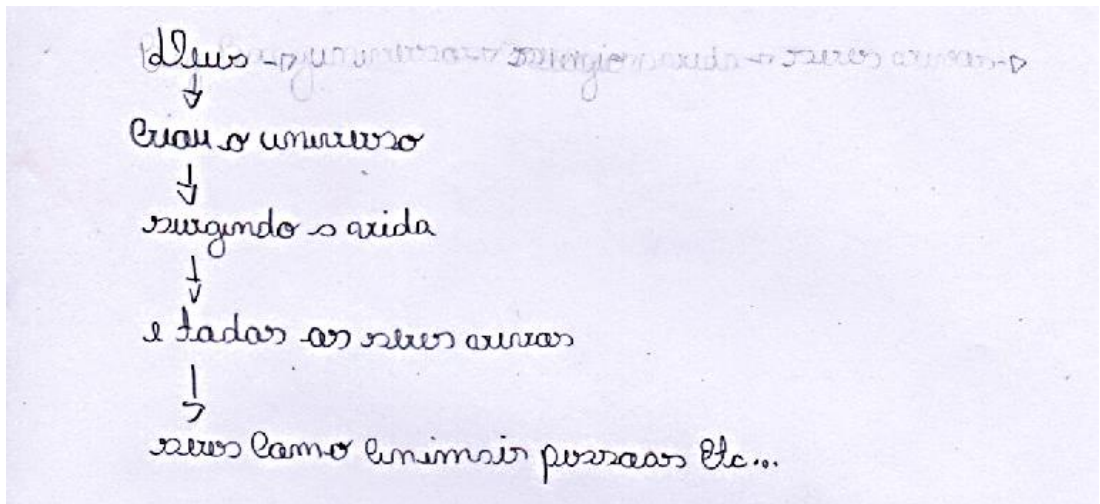 Deus
↓
Criou o universo
↓
surgindo a vida
↓
e todos os seres vivos
↓
seres como animais pessoas etc...